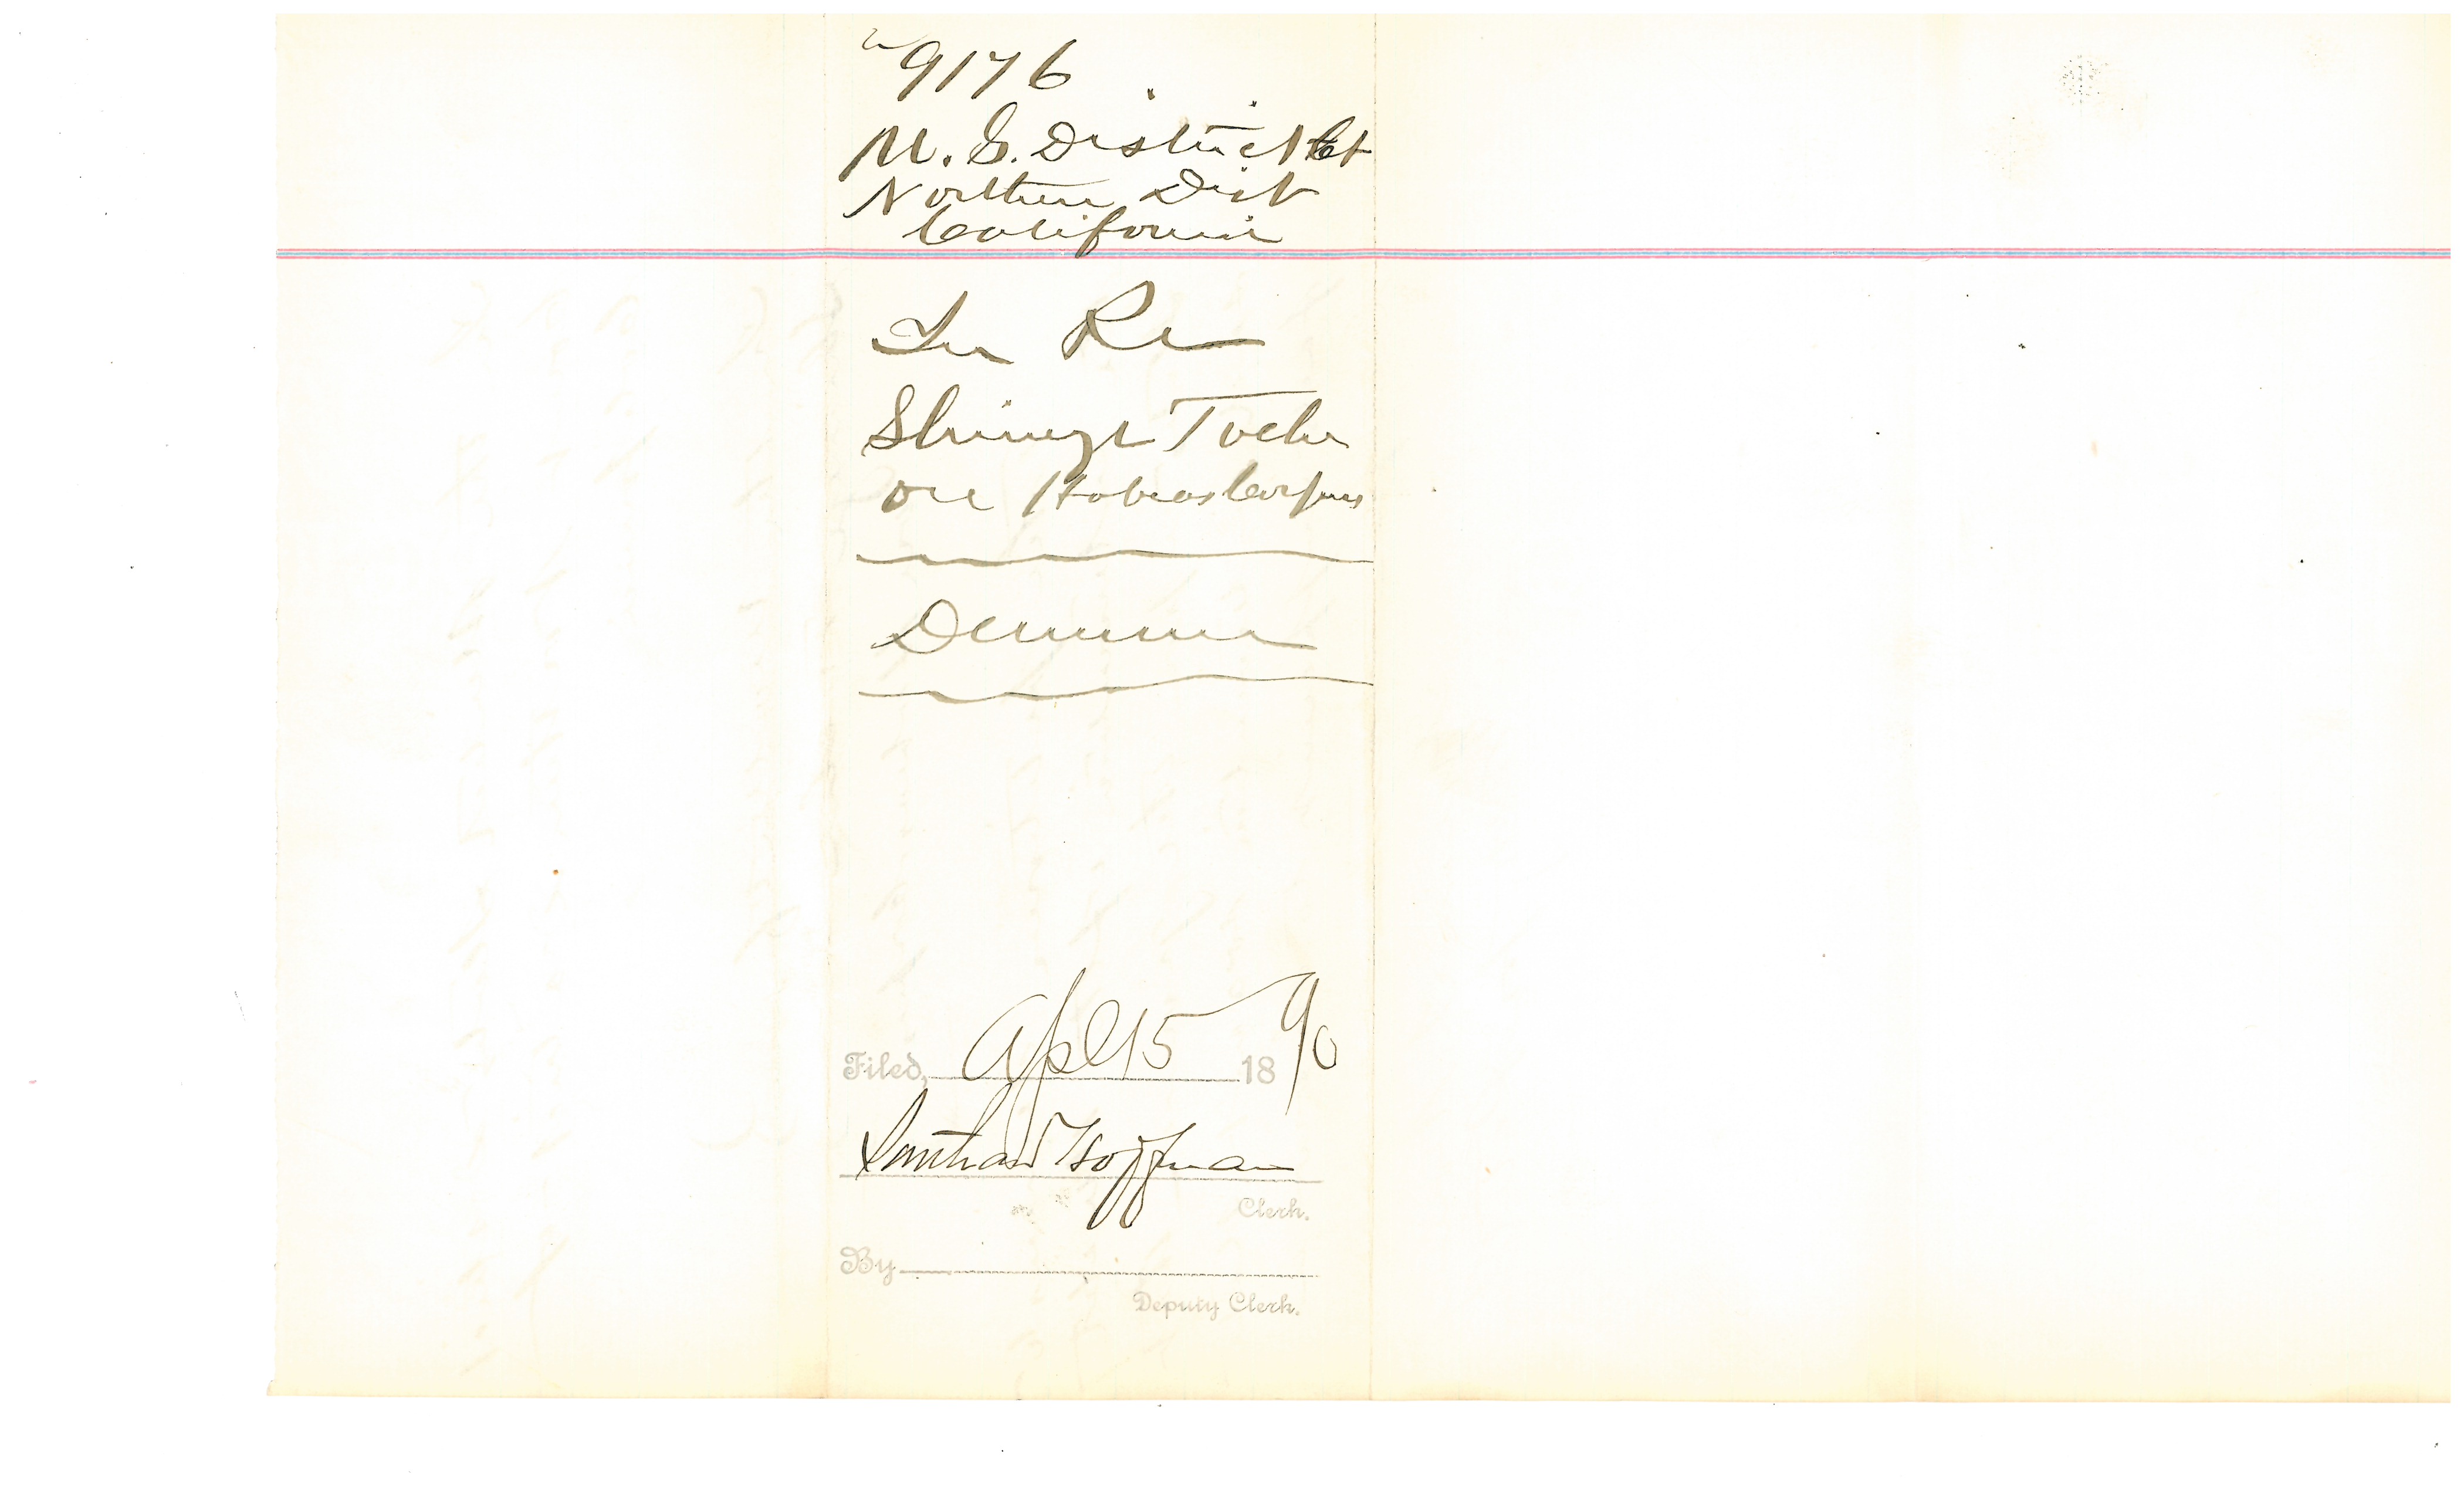 9176
U. S. District Ct
Northern Dist
California
In Re
on Habeas Corpus
Filed, Apl 15 1890
Southard Hoffman
Clerk.
By
Deputy Clerk.